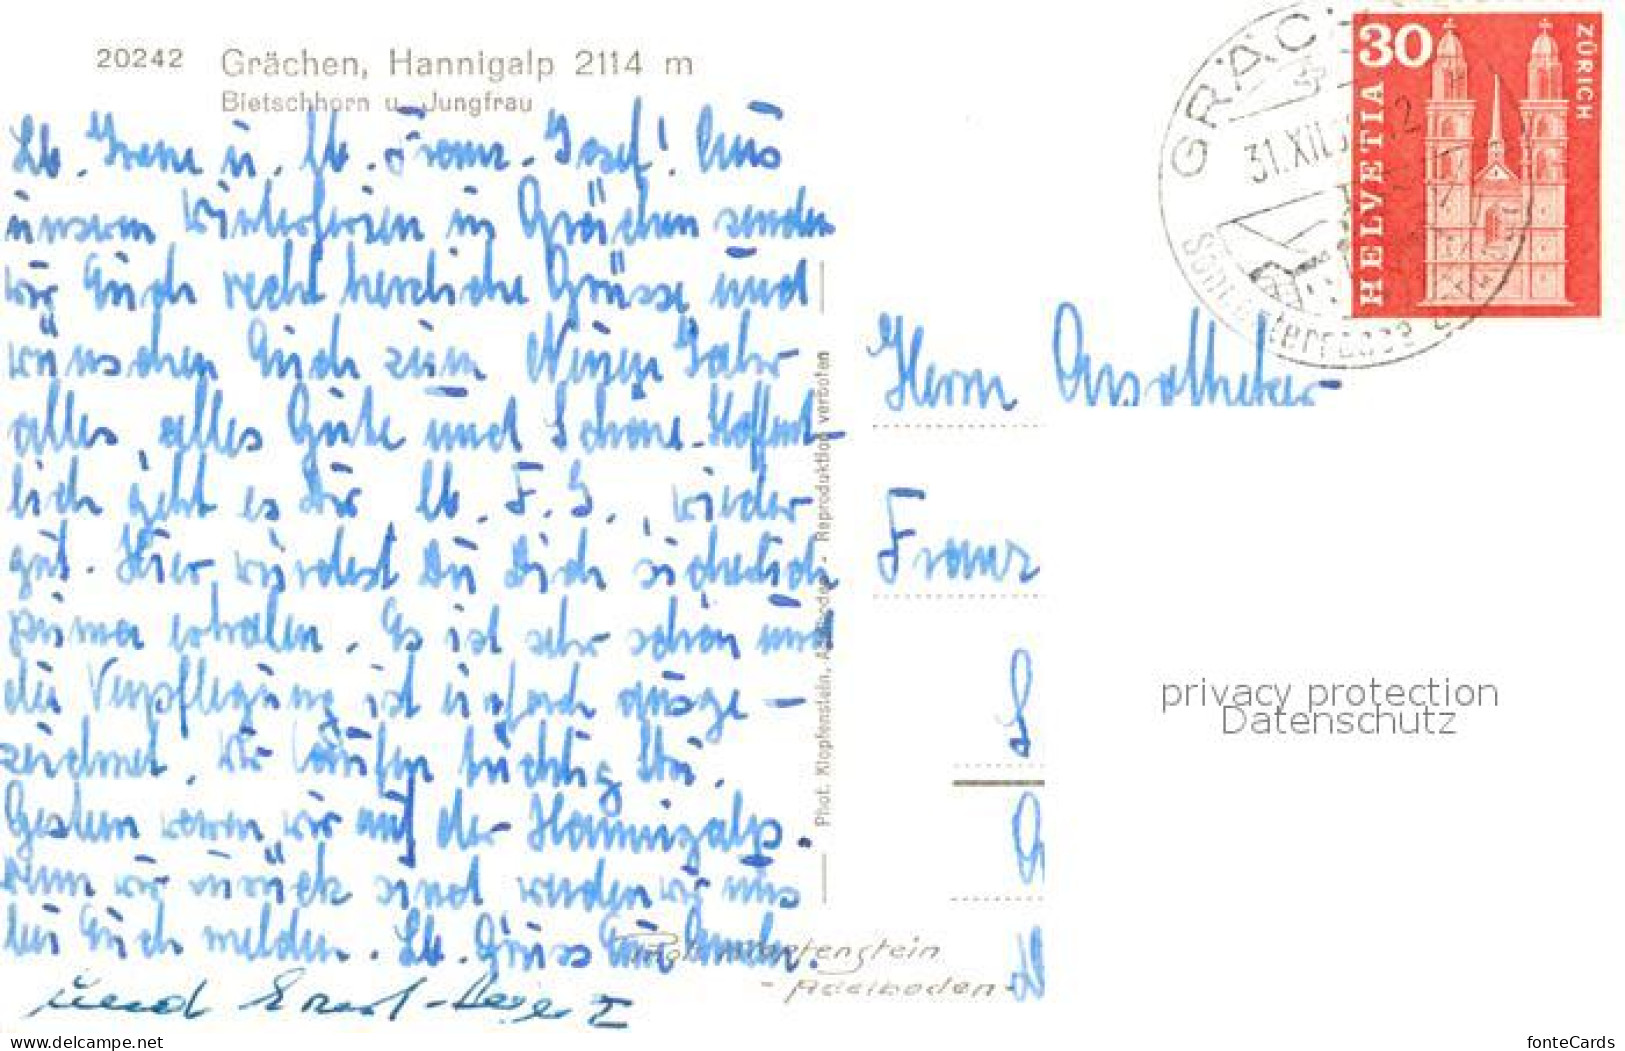 20242 Grächen, Hannigalp 2114 m
Bietschhorn u. Jungfrau
Lb. Irene u. lb. Franz-Josef! Aus
unseren Winterferien in Grächen senden
wir Euch recht herzliche Grüsse und
wünschen Euch zum Neuen Jahr
alles, alles Gute und Schöne. Hoffent-
lich geht es Dir lb. F. J., wieder
gut. Hier würdest Du Dich sicherlich
prima erholen. Es ist sehr schön und
die Verpflegung ist einfach ausge-
zeichnet. Wir laufen tüchtig Ski.
Gestern waren wir auf der Hannigalp.
Wenn wir zurück sind werden wir uns
bei Euch melden. Lb. Gruss Eure
und
Phot. Klopfenstein, Adelboden - Reproduktion verboten
Klopfenstein
- Adelboden -
GRÄC
31.XII
HELVETIA
30
ZÜRICH
Herrn Apotheker
Franz
privacy protection
Datenschutz
bay-ansichtskarte.com
fonteCards